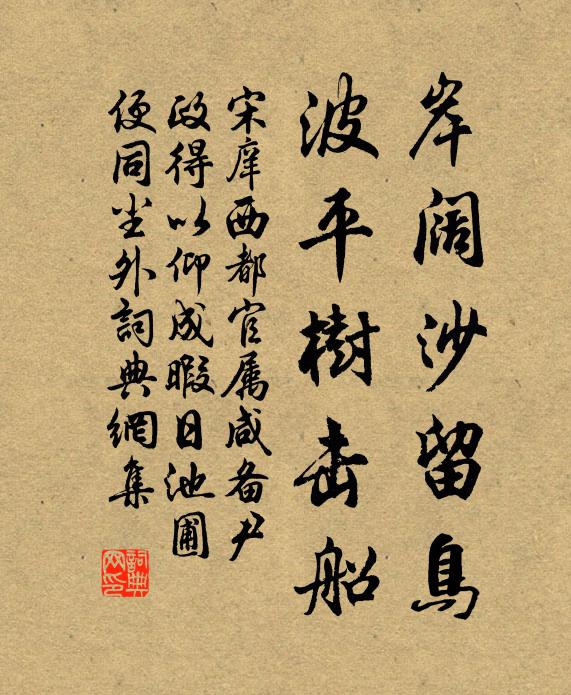 岸阔沙留鳥
波平樹击船
宋庠西都官属咸备尹
政得以仰成暇日池圃
便同尘外詞典網集
詞典
网印